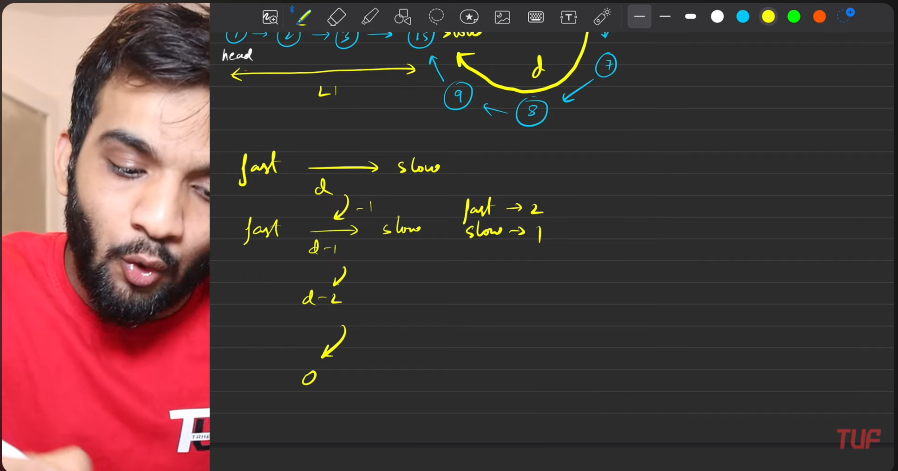 1 → 2 → 3 → 15 slow
head
L1
d
7
9
8
fast → slow
d
-1
fast → slow
d-1
fast → 2
slow → 1
d-2
0
T
TU
TUF